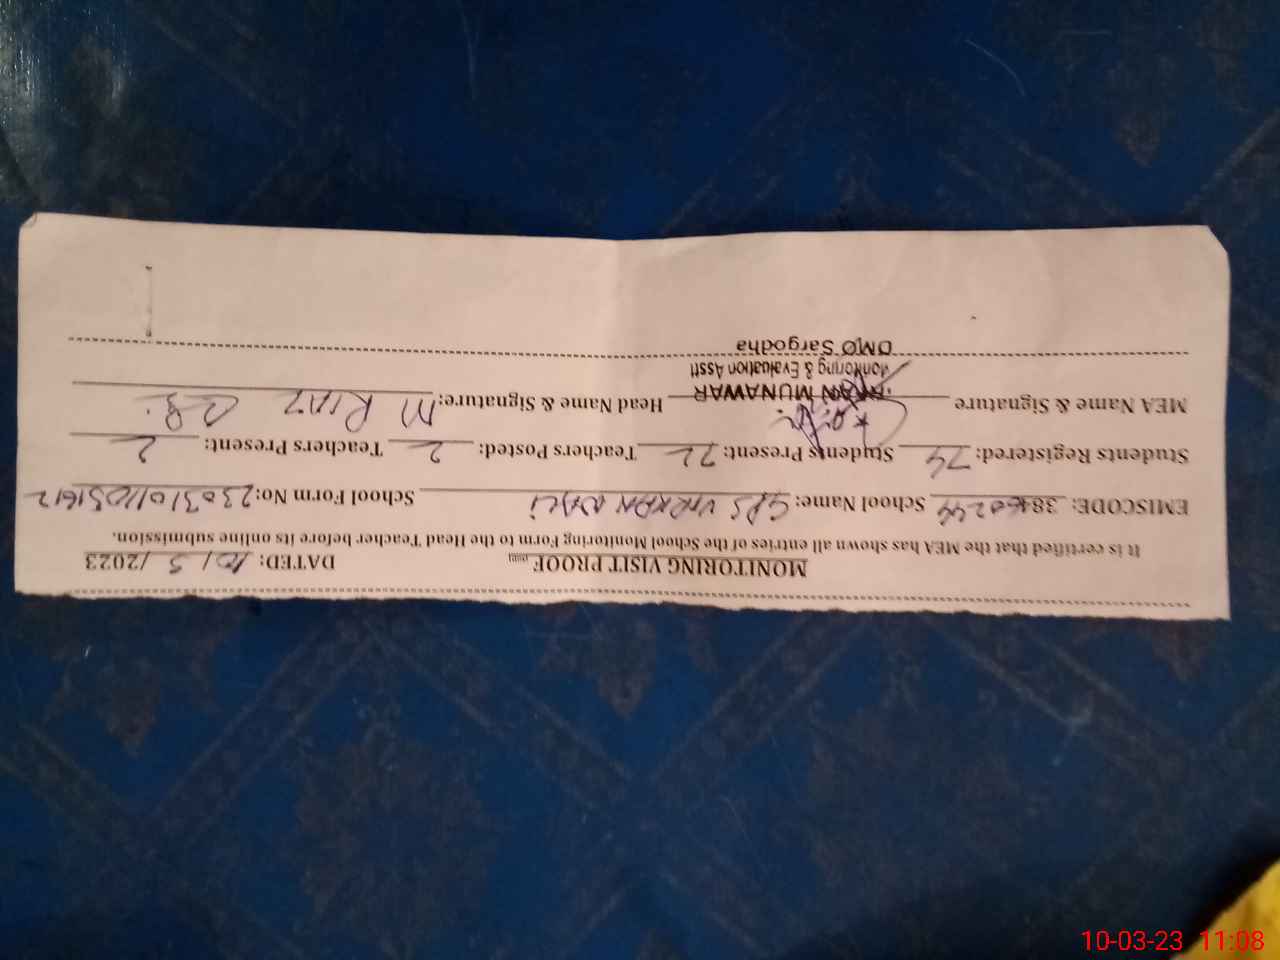 MONITORING VISIT PROOF DATED: 10/3/2023
It is certified that the MEA has shown all entries of the School Monitoring Form to the Head Teacher before its online submission.
EMISCODE: School Name: GPS School Form No:
Students Registered: 74 Students Present: 72 Teachers Posted: 2 Teachers Present: 2
MEA Name & Signature MUNAWAR Head Name & Signature: M RIAZ
Monitoring & Evaluation Asstt
DMO Sargodha
10-03-23 11:08